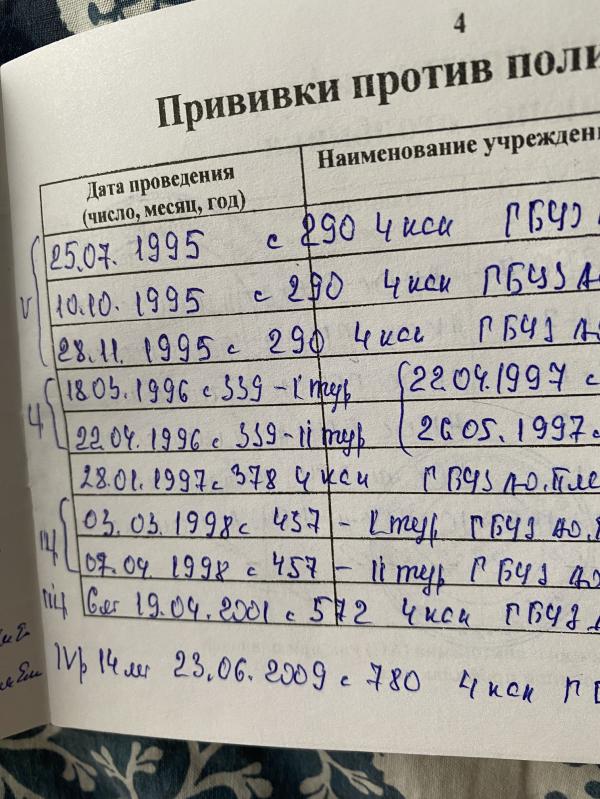 4
Прививки против поли
Дата проведения
(число, месяц, год)
Наименование учрежден
V 25.07. 1995 с 290 4 кси ГБУЗ
10.10. 1995 с 290 4 кси ГБУЗ АО
28.11. 1995 с 290 4 кси ГБУЗ АО
18.03. 1996 с 339 - I тур 22.04.1997 с
22.04. 1996 с 339 - II тур 26.05. 1997 с
28.01. 1997 с 378 4 кси ГБУЗ АО. Пле
03. 03. 1998 с 457 - I тур ГБУЗ АО.
07.04. 1998 с 457 - II тур ГБУЗ АО
6 лет 19.04.2001 с 572 4 кси ГБУЗ
IVр 14 лет 23.06.2009 с 780 4 кси